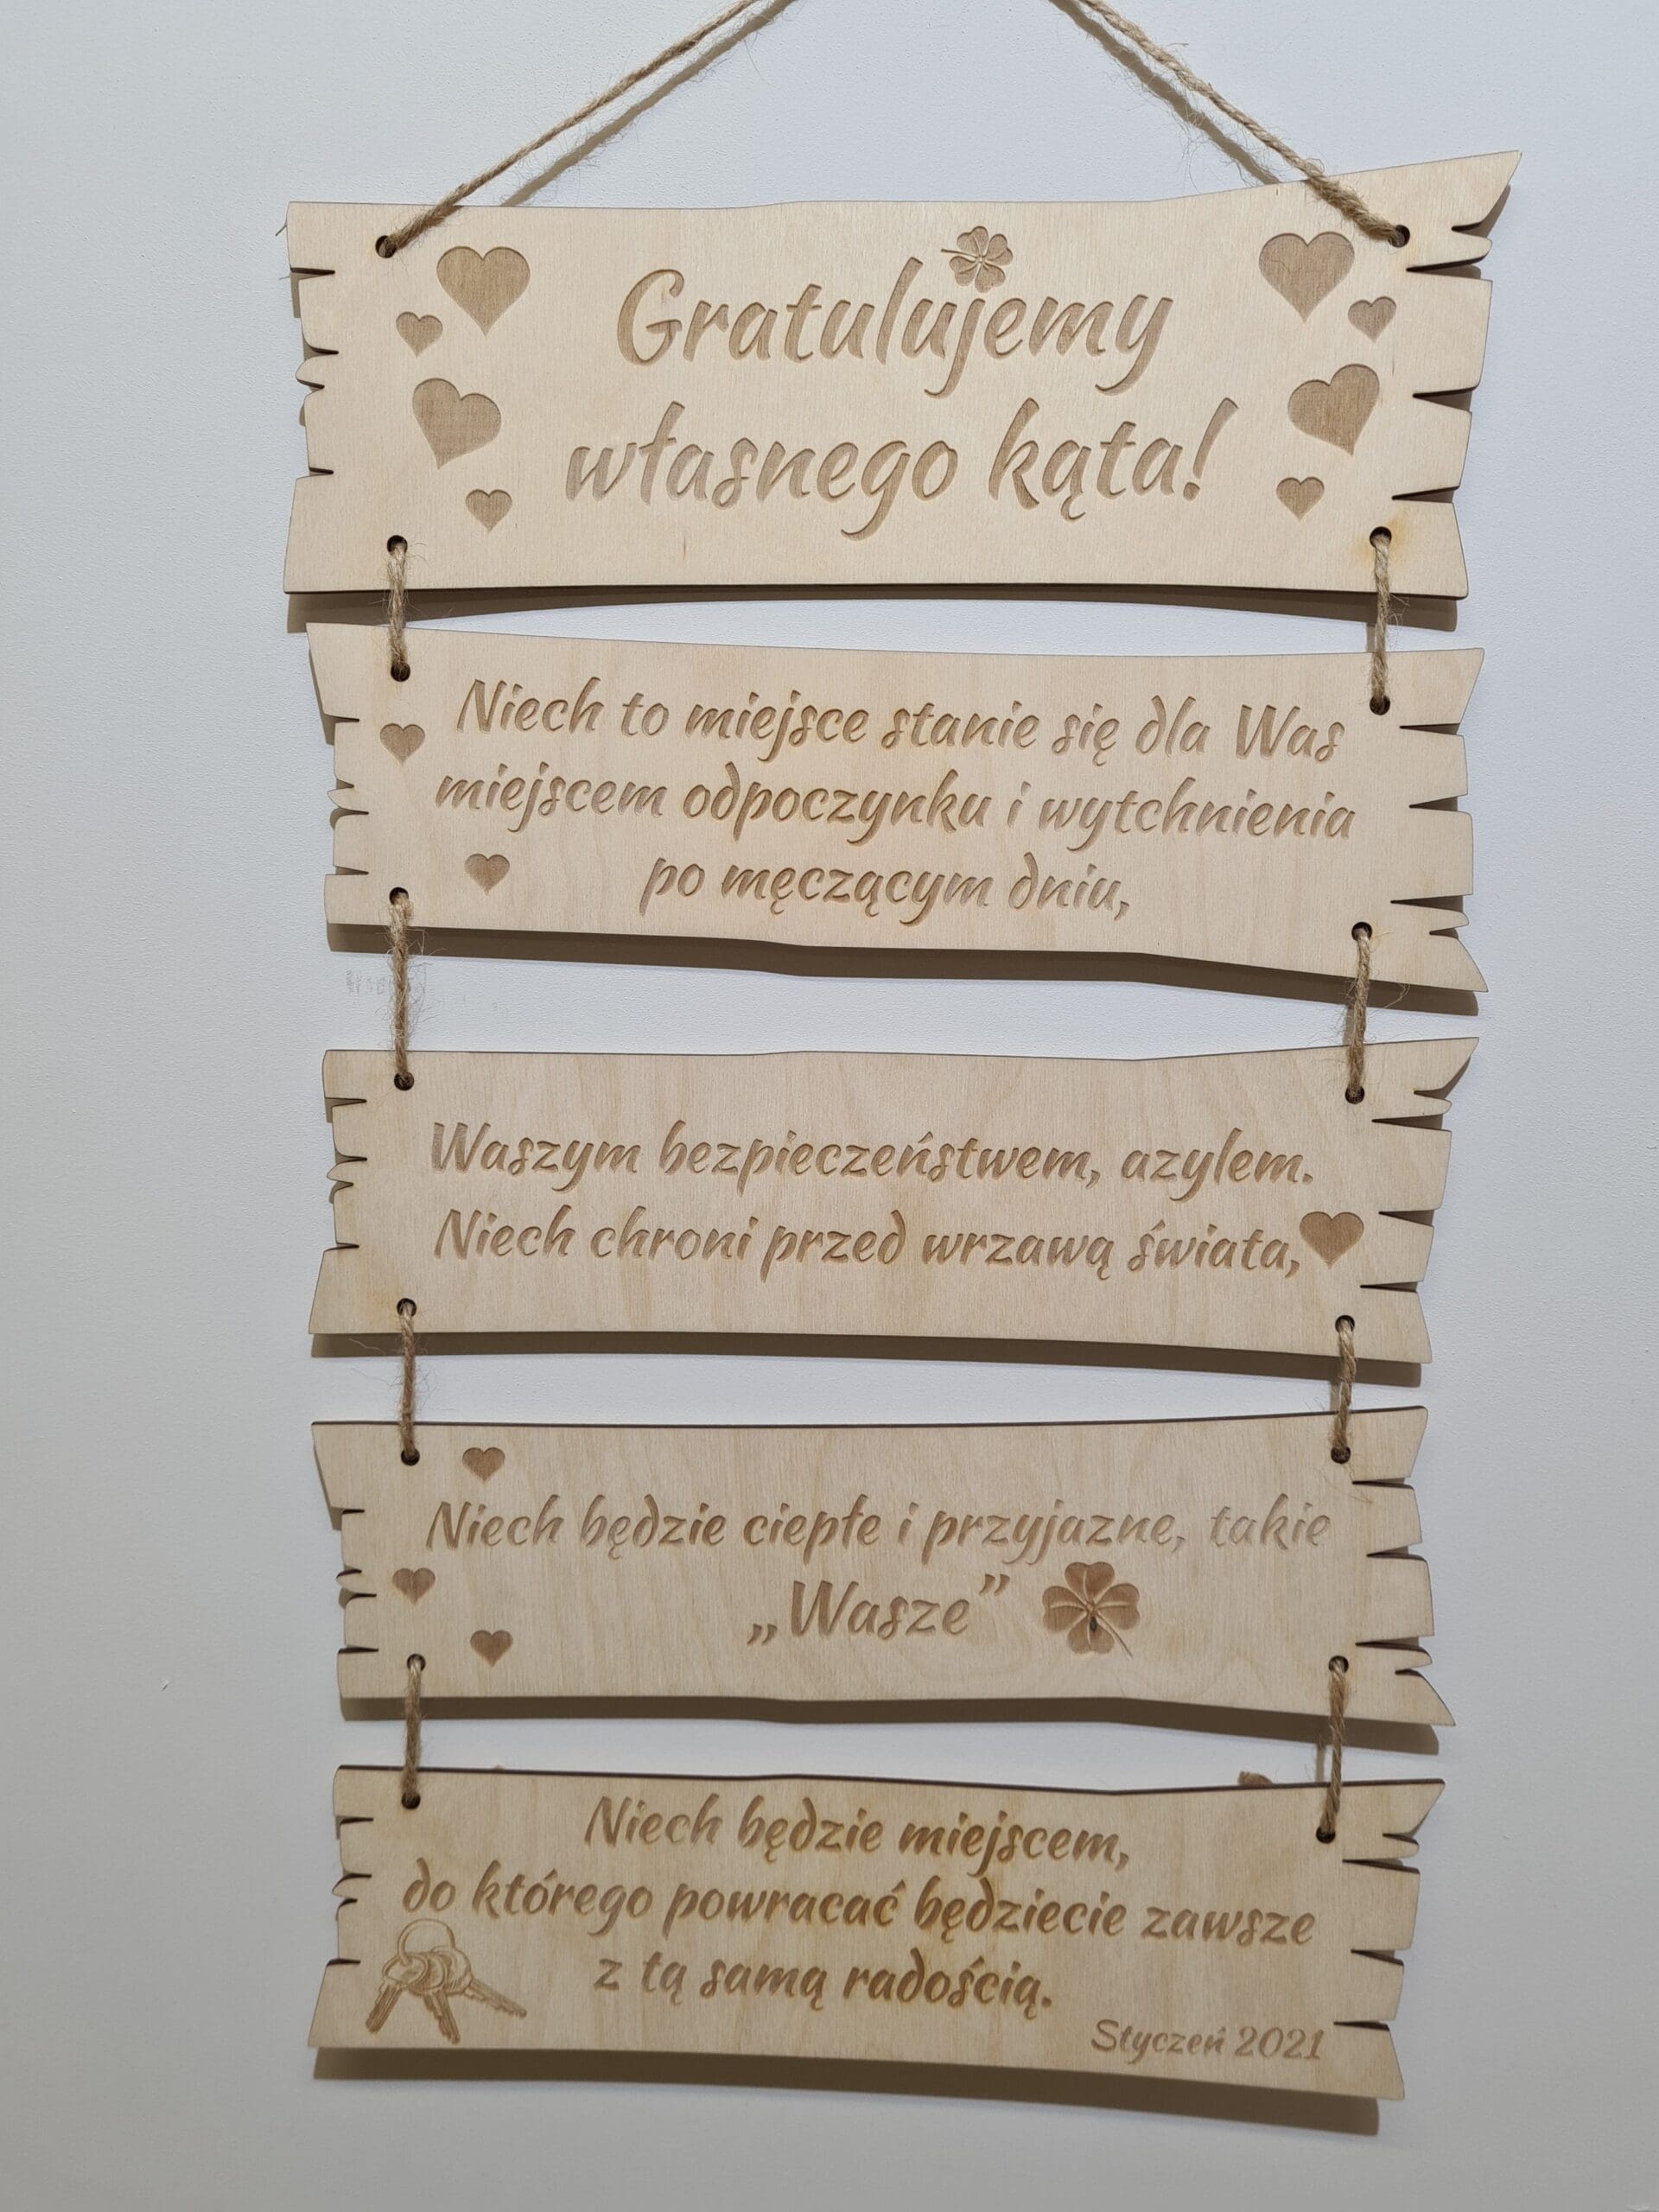 Gratulujemy
własnego kąta!
Niech to miejsce stanie się dla Was
miejscem odpoczynku i wytchnienia
po męczącym dniu,
Waszym bezpieczeństwem, azylem.
Niech chroni przed wrzawą świata,
Niech będzie ciepłe i przyjazne, takie
„Wasze”
Niech będzie miejscem,
do którego powracać będziecie zawsze
z tą samą radością.
Styczeń 2021